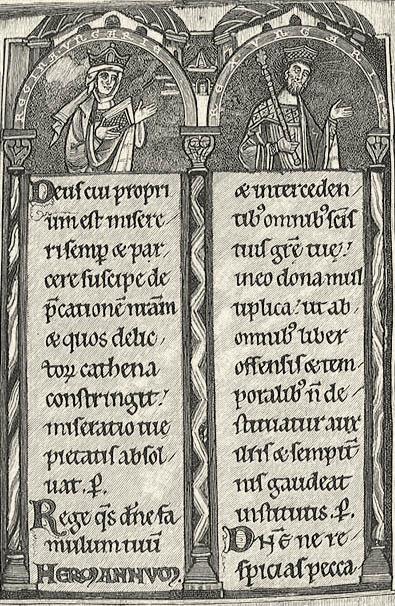 REGINA VNGARIE
Deus cui propri
um est misere
ri semp & par
cere suscipe de
p̄cationē nr̄am
& quos delic
toꝝ cathena
constringit.
miseratio tue
pietatis absol
uat. P̄.
Rege q̄s dn̄e fa
mulum tuū
HERMANNVM.
REX VNGARIE
& interceden
tib᾽ omnib᾽ sc̄is
tuis gr̄e tue
in eo dona mul
tiplica. ut ab
omnib᾽ liber
offensis & tem
poralib᾽ n̄ de
stituatur aux
iliis & sempit̄
nis gaudeat
institutis. P̄.
DNE ne re
spicias pecca